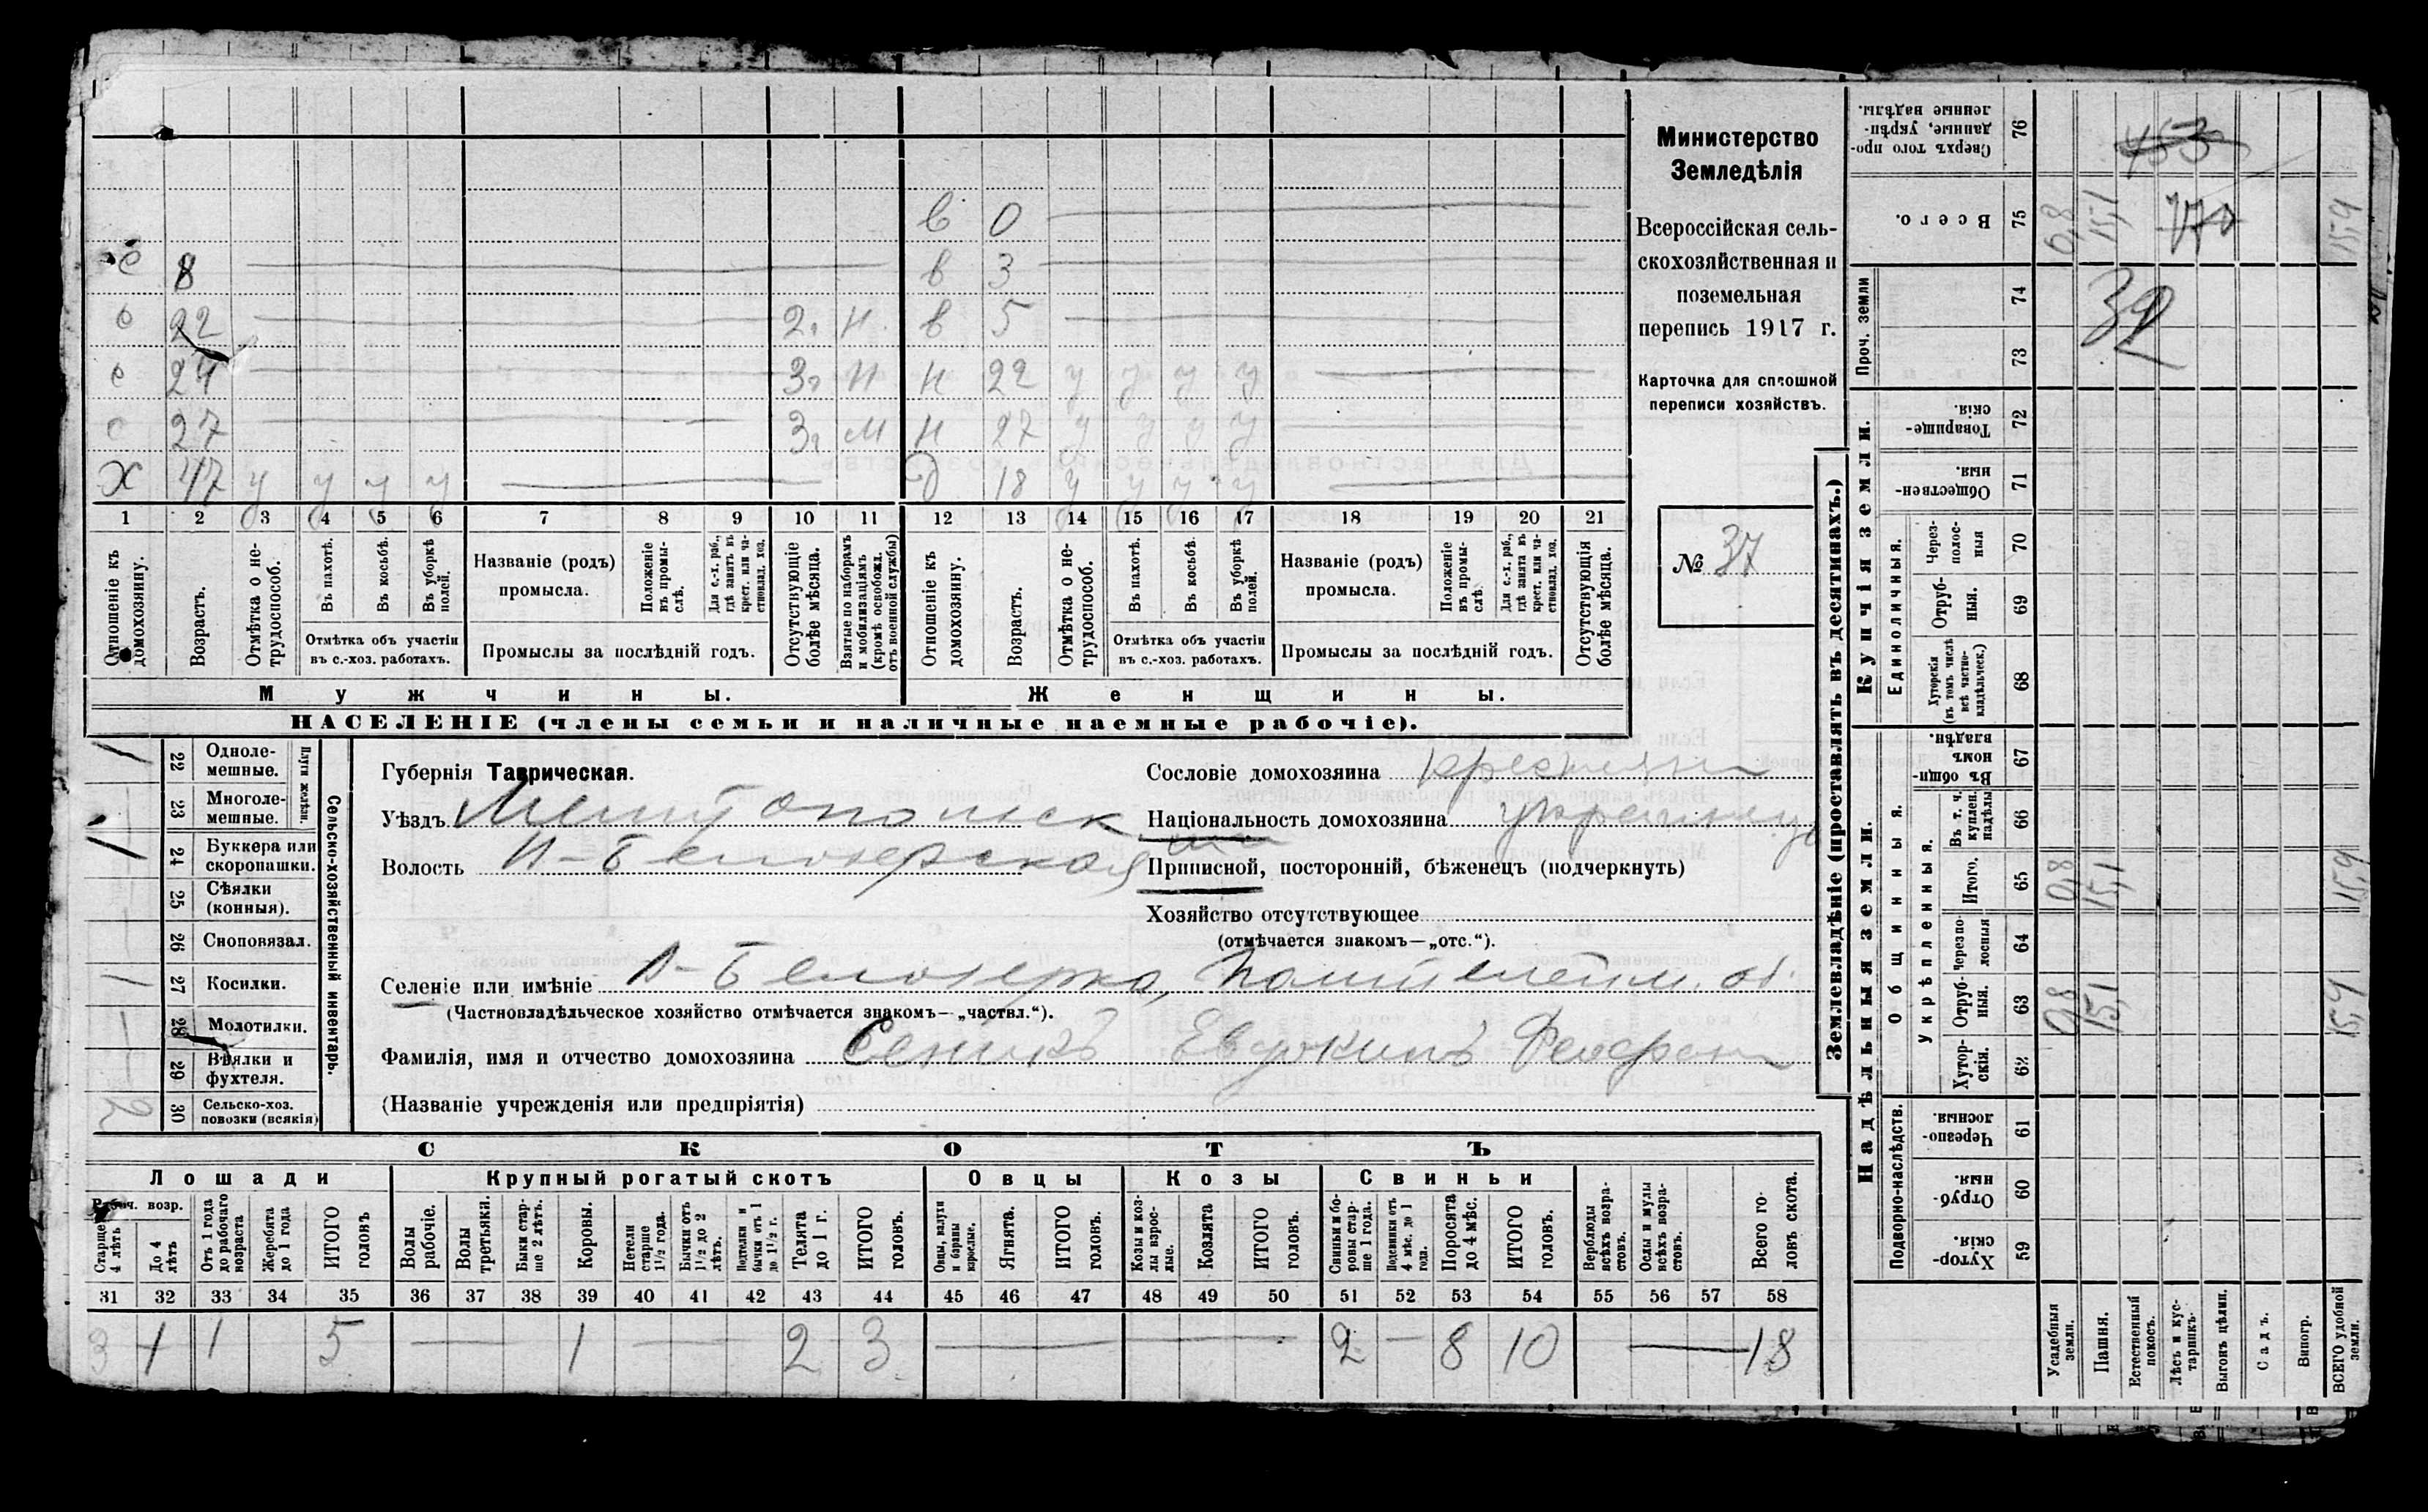 в 0
с 8 в 3
с 22 2г Н. в 5
с 24 3г Н н 22 у у у у
с 27 3г М н 27 у у у у
Х 47 у у у у д 18 у у у у
1 2 3 4 5 6 7 8 9 10 11 12 13 14 15 16 17 18 19 20 21
Отношеніе къ домохозяину.
Возрастъ.
Отмѣтка о не-
трудоспособ.
Въ пахотѣ.
Въ косьбѣ.
Въ уборкѣ полей.
Отмѣтка объ участіи
въ с.-хоз. работахъ.
Названіе (родъ)
промысла.
Положеніе
въ промы-
слѣ.
Для с.-х. раб.,
гдѣ занятъ въ
крест. или ча-
стновлад. хоз.
Промыслы за послѣдній годъ.
Отсутствующіе
болѣе мѣсяца.
Взятые по наборамъ
и мобилизаціямъ
(кромѣ освобожд.
отъ военной службы)
Отношеніе къ
домохозяину.
Возрастъ.
Отмѣтка о не-
трудоспособ.
Въ пахотѣ.
Въ косьбѣ.
Въ уборкѣ
полей.
Отмѣтка объ участіи
въ с.-хоз. работахъ.
Названіе (родъ)
промысла.
Положеніе
въ промы-
слѣ.
Для с.-х. раб.,
гдѣ занята въ
крест. или ча-
стновлад. хоз.
Промыслы за послѣдній годъ.
Отсутствующія
болѣе мѣсяца.
Мужчины.
Женщины.
НАСЕЛЕНІЕ (члены семьи и наличные наемные рабочіе).
Министерство
Земледѣлія
Всероссійская сель-
скохозяйственная и
поземельная
перепись 1917 г.
Карточка для сплошной
переписи хозяйствъ.
№ 37
22 Одноле-
мешные.
23 Многоле-
мешные.
Плуги желѣзн.
24 Буккера или
скоропашки.
25 Сѣялки
(конныя).
26 Сноповязал.
27 Косилки.
28 Молотилки.
29 Вѣялки и
фухтеля.
30 Сельско-хоз.
повозки (всякія)
2
Сельско-хозяйственный инвентарь.
Губернія Таврическая.
Уѣздъ Мелитопольск
Волость Н-Белозерская
Сословіе домохозяина крестьянин
Національность домохозяина украинец
Приписной, посторонній, бѣженецъ (подчеркнуть)
Хозяйство отсутствующее
(отмѣчается знакомъ—„отс.“).
Селеніе или имѣніе Н-Белозерка,
(Частновладѣльческое хозяйство отмѣчается знакомъ—„частвл.“).
Фамилія, имя и отчество домохозяина Сеникъ Евдокимъ
(Названіе учрежденія или предпріятія)
СКОТЪ
Лошади Крупный рогатый скотъ Овцы Козы Свиньи
Рабоч. возр.
Старше
4 лѣтъ
До 4
лѣтъ
Отъ 1 года
до рабочаго
возраста
Жеребята
до 1 года
ИТОГО
головъ
Волы
рабочіе.
Волы
третьяки.
Быки стар-
ше 2 лѣтъ.
Коровы.
Нетели
старше
1½ года.
Бычки отъ
1½ до 2
лѣтъ.
Подтелки и
бычки отъ 1
до 1½ г.
Телята
до 1 г.
ИТОГО
головъ.
Овцы, валухи
и бараны
взрослые.
Ягнята.
ИТОГО
головъ.
Козы и коз-
лы взрос-
лые.
Козлята
ИТОГО
головъ.
Свиньи и бо-
ровы стар-
ше 1 года.
Подсвинки отъ
4 мѣс. до 1
года.
Поросята
до 4 мѣс.
ИТОГО
головъ.
Верблюды
всѣхъ возра-
стовъ.
Ослы и мулы
всѣхъ возра-
стовъ.
Всего го-
ловъ скота.
31 32 33 34 35 36 37 38 39 40 41 42 43 44 45 46 47 48 49 50 51 52 53 54 55 56 57 58
3 1 1 5 — 1 — 2 3 — — 2 — 8 10 — 18
Землевладѣніе (проставлять въ десятинахъ.)
Купчія земли.
Надѣльныя земли.
Сверхъ того про-
данные, укрѣп-
ленные надѣлы.
76 453
Всего.
75 0,8 15,1 15,9
Проч. земли
74 32
73
Товарище-
скія.
72
Обществен-
ныя.
71
Единоличныя.
Через-
полос-
ныя
70
Отруб-
ныя.
69
Хуторскія
(въ томъ числѣ
всѣ частно-
владѣльческ.)
68
Общинныя.
Въ общин-
номъ
владѣн.
67
Укрѣпленныя.
Въ т. ч.
куплен.
надѣлы
66
Итого.
65 0,8 15,1 15,9
Черезпо-
лосныя
64
Отруб-
ныя.
63 0,8 15,1 15,9
Хутор-
скія.
62
Подворно-наслѣдств.
Черезпо-
лосныя
61
Отруб-
ныя.
60
Хутор-
скія.
59
Усадебныя
земли.
Пашня.
Естественный
покосъ.
Лѣсъ и кус-
тарникъ.
Выгонъ цѣлин.
Садъ.
Виногр.
ВСЕГО удобной
земли.